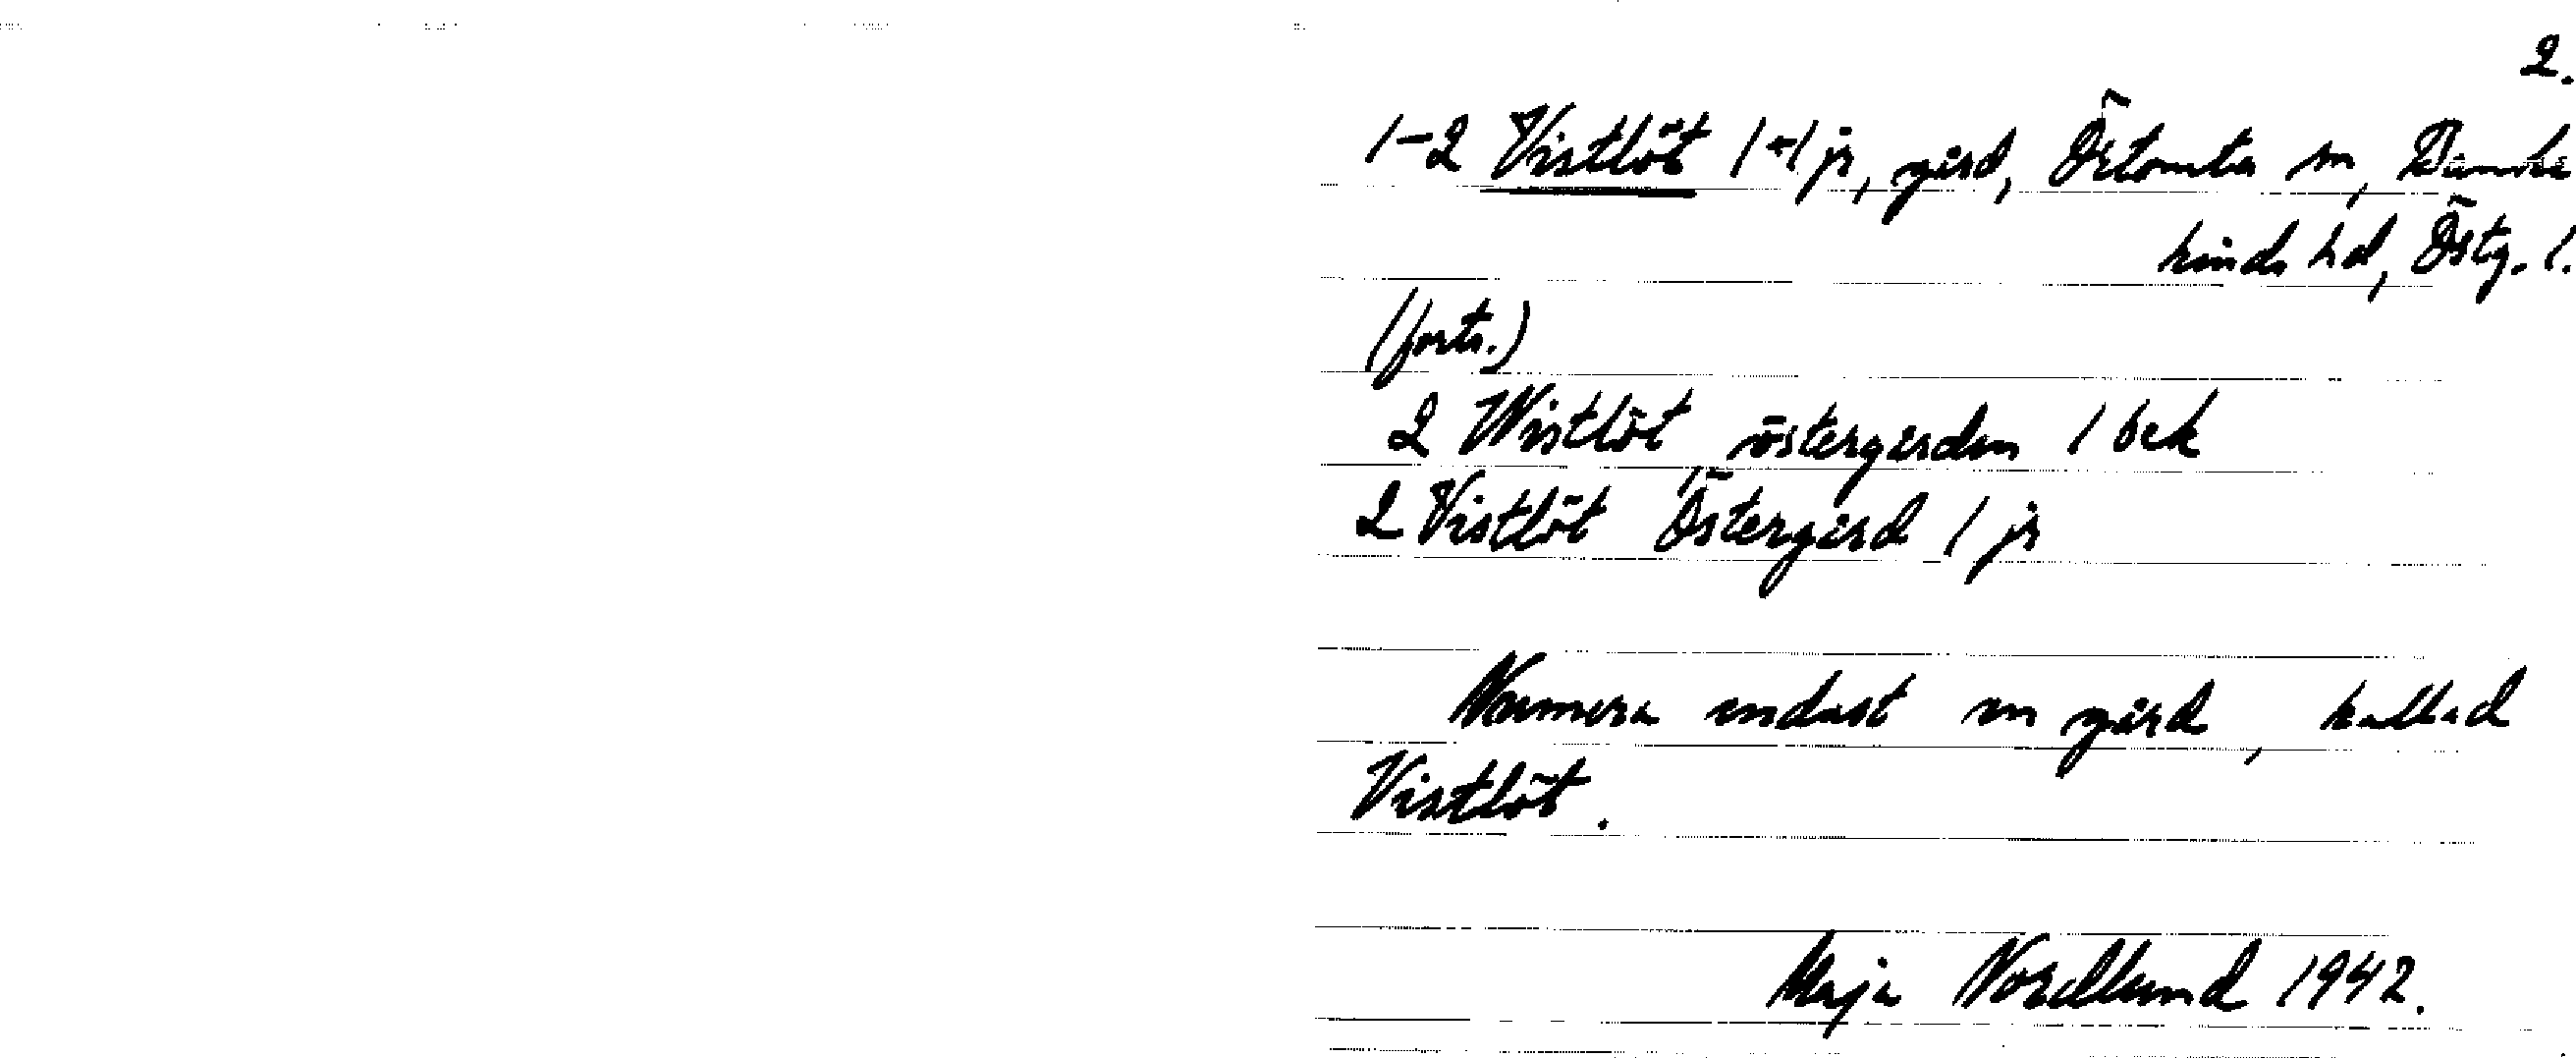 2.
1-2 Vistlöt 1+1 jr, gård, Örtomta sn, Banke
kinds hd, Östg. l.
(forts.)
2 Wistlöt, östergården 1 bek
2 Vistlöt Östergård 1 jr
Numera endast en gård, kallad
Vistlöt.
Maja Nordlund 1942.